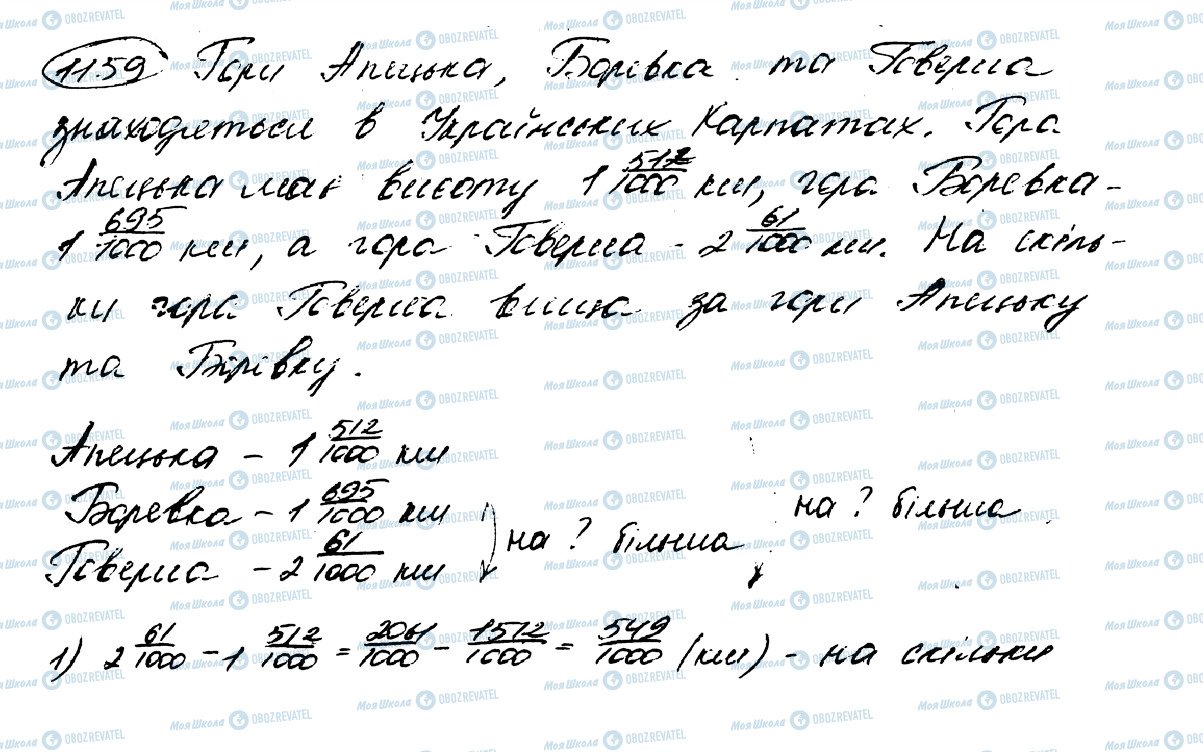 1159 Гори Апецька, Боревка та Говерла
знаходяться в Українських Карпатах. Гора
Апецька має висоту 1 512/1000 км, гора Боревка -
1 695/1000 км, а гора Говерла - 2 61/1000 км. На скіль-
ки гора Говерла вища за гори Апецьку
та Борівку.
Апецька - 1 512/1000 км
Боревка - 1 695/1000 км
Говерла - 2 61/1000 км
на ? більша
на ? більша
1) 2 61/1000 - 1 512/1000 = 2061/1000 - 1512/1000 = 549/1000 (км) - на скільки